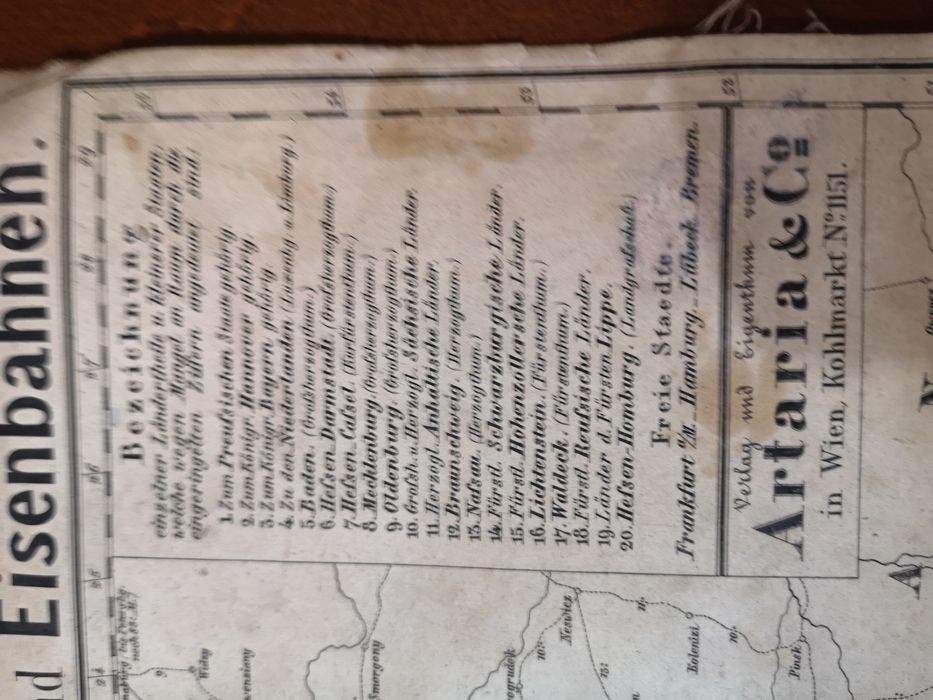 nd Eisenbahnen.
Bezeichnung
einzelner Ländertheile u. kleinerer Staaten,
welche wegen Mangel an Raum durch die
eingeringelten Ziffern angedeutet sind:
1. Zum Preufsischen Staate gehörig.
2. Zum Königr. Hannover gehörig.
3. Zum Königr. Bayern gehörig.
4. Zu den Niederlanden (Luxemb. u. Limburg.)
5. Baden. (Grofsherzogthum.)
6. Hefsen-Darmstadt. (Grofsherzogthum.)
7. Hefsen-Cafsel. (Kurfürstenthum.)
8. Mecklenburg. (Grofsherzogthum.)
9. Oldenburg. (Grofsherzogthum.)
10. Grofsh. u. Herzogl. Sächsische Länder.
11. Herzogl. Anhaltische Länder.
12. Braunschweig. (Herzogthum.)
13. Nafsau. (Herzogthum.)
14. Fürstl. Schwarzburgische Länder.
15. Fürstl. Hohenzollersche Länder.
16. Lichtenstein. (Fürstenthum.)
17. Waldeck. (Fürstenthum.)
18. Fürstl. Reufsische Länder.
19. Länder d. Fürsten Lippe.
20. Hefsen-Homburg. (Landgrafschaft.)
Freie Staedte.
Frankfurt a/M._ Hamburg._ Lübeck. Bremen.
Verlag und Eigenthum von
Artaria & Co
in Wien, Kohlmarkt No. 1151.
Widzy
Smorgony
Neswicz
Kolenizi
Pinsk
A
N